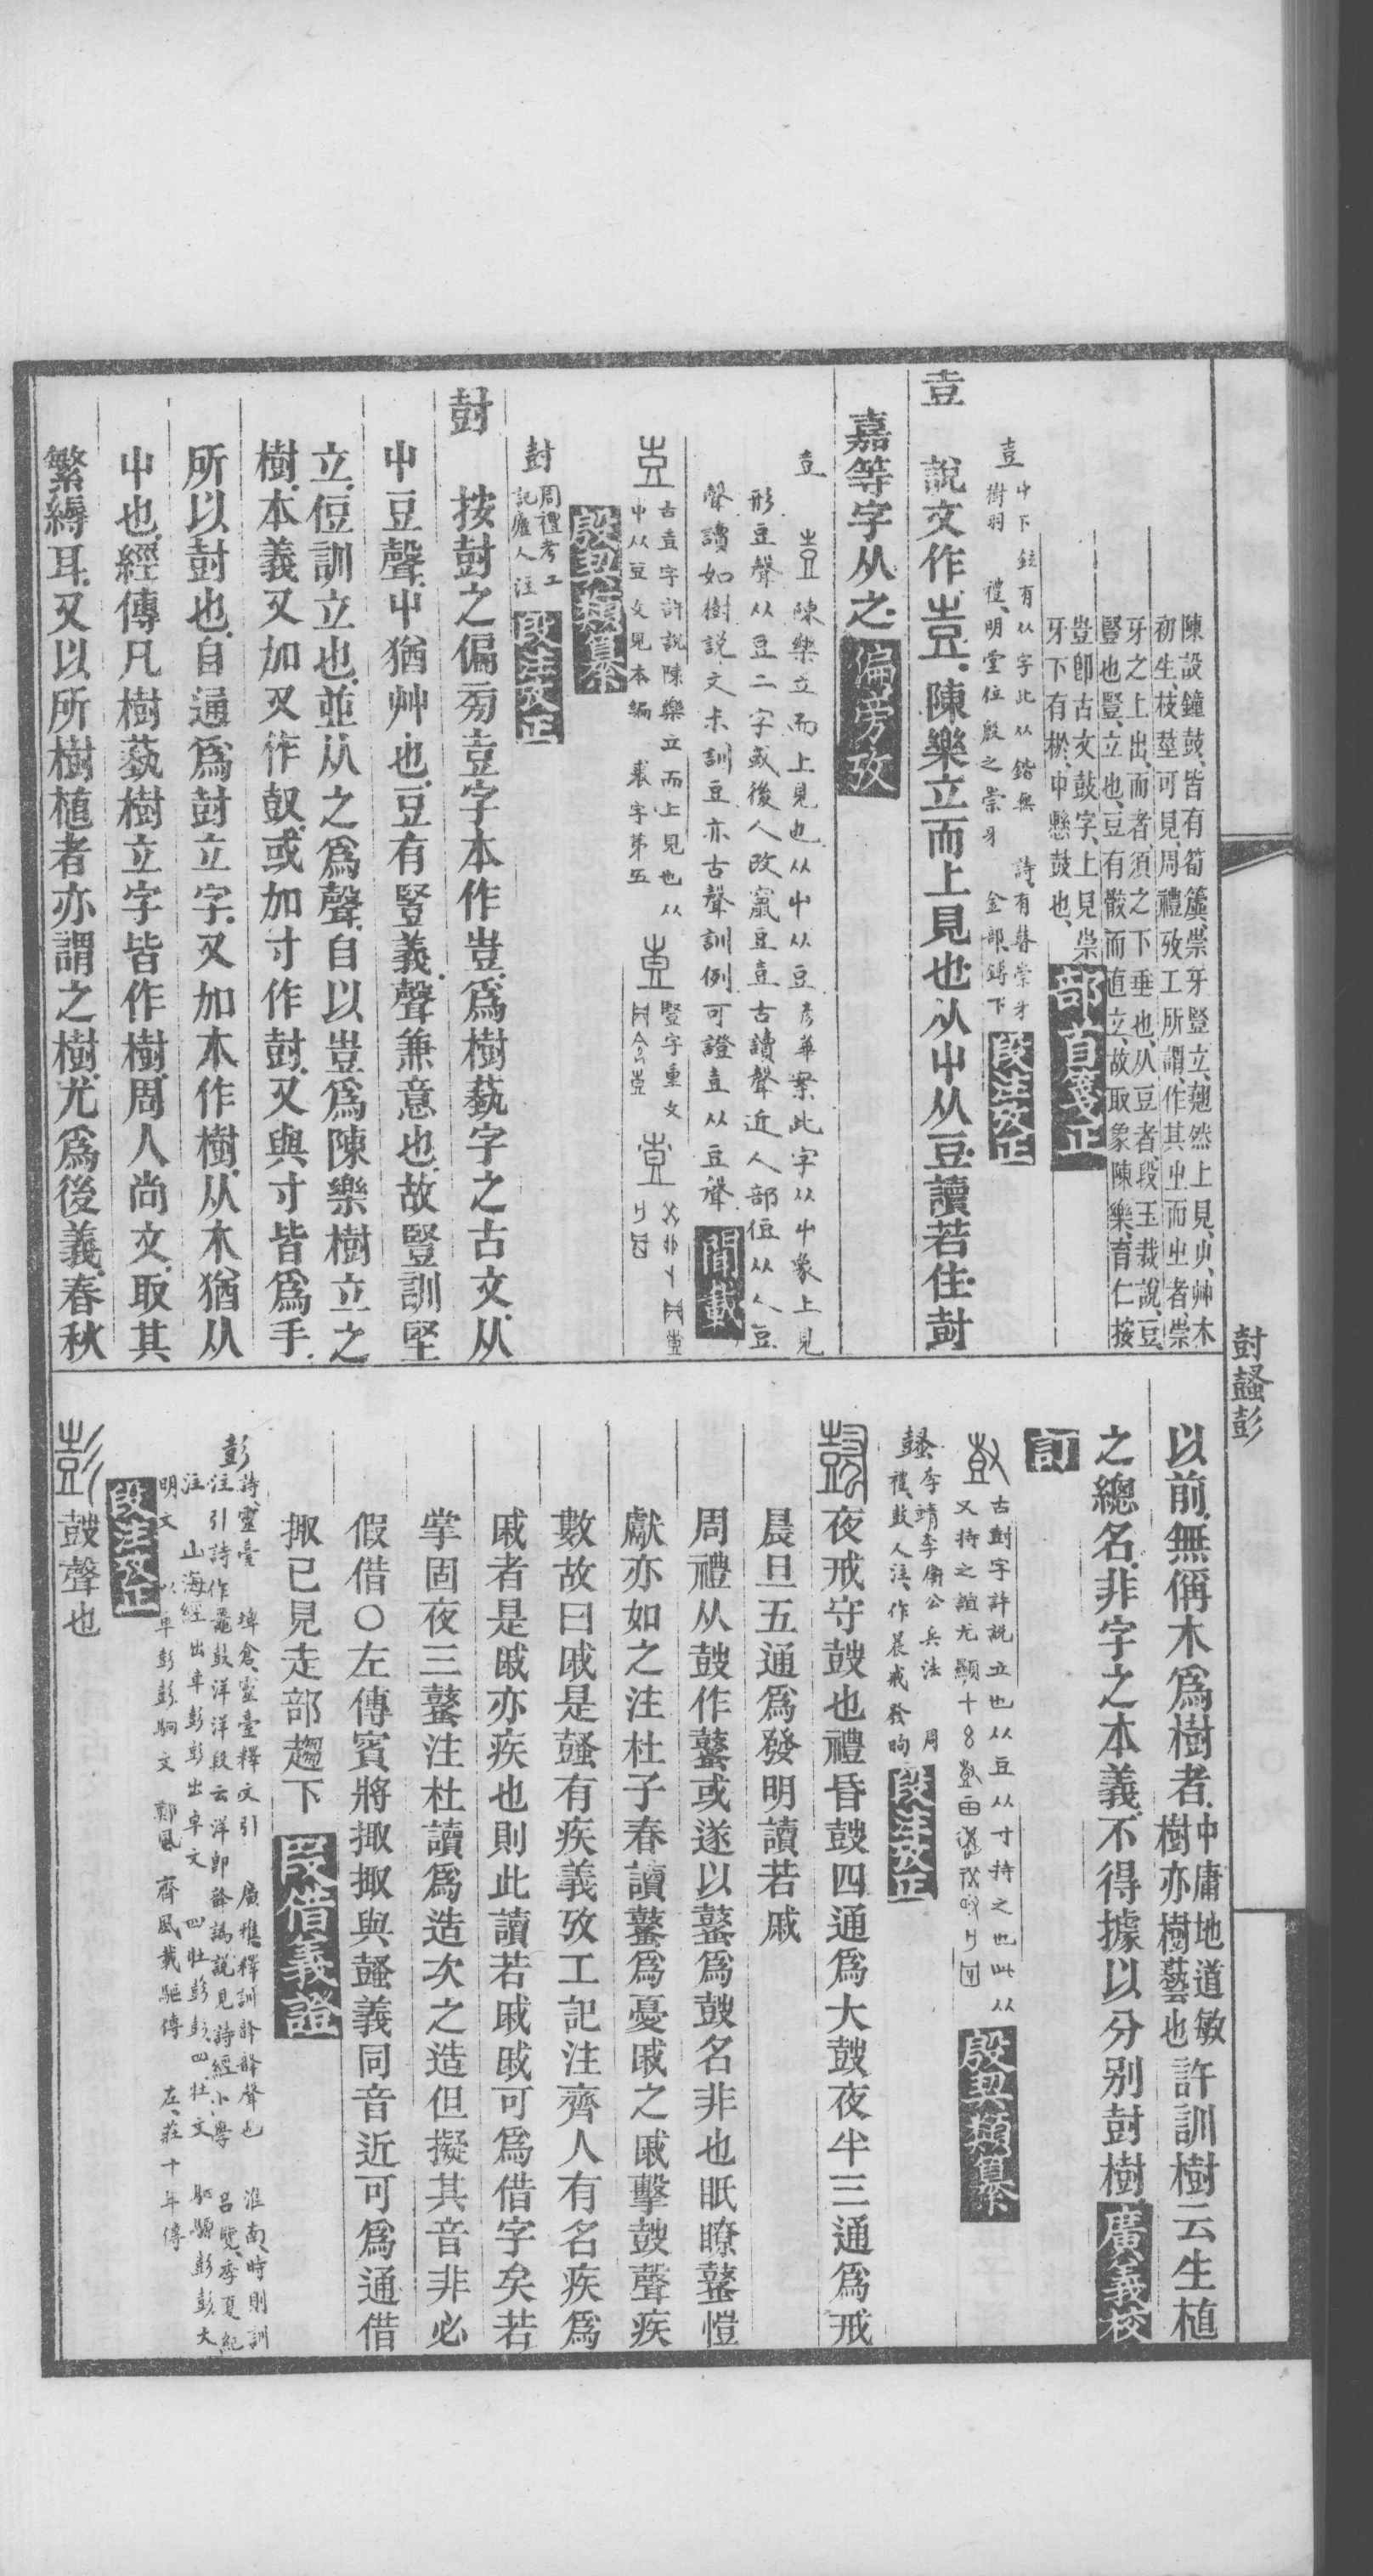 陳設鐘鼓皆有筍簴崇牙豎立䞣然上見屮艸木
初生枝莖可見周禮攷工所謂作其㞢而㞢者崇
牙之上出而者須之下垂也从豆者段玉裁說豆
豎也豎立也豆有骸而直立故取象陳樂育仁按
豈卽古文鼓字上見崇
牙下有樅中懸鼓也部首箋正
壴 屮下 鉉有从字此从鍇無 詩有瞽崇牙
樹羽 禮明堂位殷之崇牙 金部鎛下 段注攷正
壴 說文作壴陳樂立而上見也从屮从豆讀若住尌
嘉等字从之偏旁攷
壴 壴陳樂立而上見也从屮从豆彥華案此字从屮象上見
形豆聲从豆二字或後人改竄豆壴古讀聲近人部侸从人豆
聲讀如樹說文尗訓豆亦古聲訓例可證壴从豆聲閒載
壴 古壴字許說陳樂立而上見也从
屮从豆文見本編 裘字第五 豎字重文
殷契類纂
尌 周禮考工
記廬人注 段注攷正
尌 按尌之偏旁壴字本作豈爲樹蓺字之古文从
屮豆聲屮猶艸也豆有豎義聲兼意也故豎訓堅
立侸訓立也並从之爲聲自以豈爲陳樂樹立之
樹本義又加又作㪇或加寸作尌又與寸皆爲手
所以尌也自通爲尌立字又加木作樹从木猶从
屮也經傳凡樹蓺樹立字皆作樹周人尚文取其
繁縟耳又以所樹植者亦謂之樹尤爲後義春秋
尌鼜彭
以前無偁木爲樹者中庸地道敏
樹亦樹藝也許訓樹云生植
之總名非字之本義不得據以分别尌樹廣義校
訂
古尌字許說立也从豆从寸持之也此从
又持之誼尤顯 殷契類纂
鼜 李靖李衛公兵法 周
禮鼓人注作晨戒發昫 段注攷正
鼜 夜戒守鼓也禮昏鼓四通爲大鼓夜半三通爲戒
晨旦五通爲發明讀若戚
周禮从鼓作鼜或遂以鼜爲鼓名非也眡瞭鼜愷
獻亦如之注杜子春讀鼜爲憂戚之戚擊鼓聲疾
數故曰戚是鼜有疾義攷工記注齊人有名疾爲
戚者是戚亦疾也則此讀若戚戚可爲借字矣若
掌固夜三鼜注杜讀爲造次之造但擬其音非必
假借○左傳賓將掫掫與鼜義同音近可爲通借
掫已見走部趨下段借義證
彭 詩靈臺 埤倉靈臺釋文引 廣雅釋訓韸韸聲也 淮南時則訓
注引詩作鼉鼓洋洋段云洋卽韸譌說見詩經小學 呂覽季夏紀
注 山海經 出車彭彭出車文 四牡彭彭四牡文 駟騵彭彭大
明文 以車彭彭駉文 鄭風 齊風載驅傳 左莊十年傳
段注攷正
彭 鼓聲也